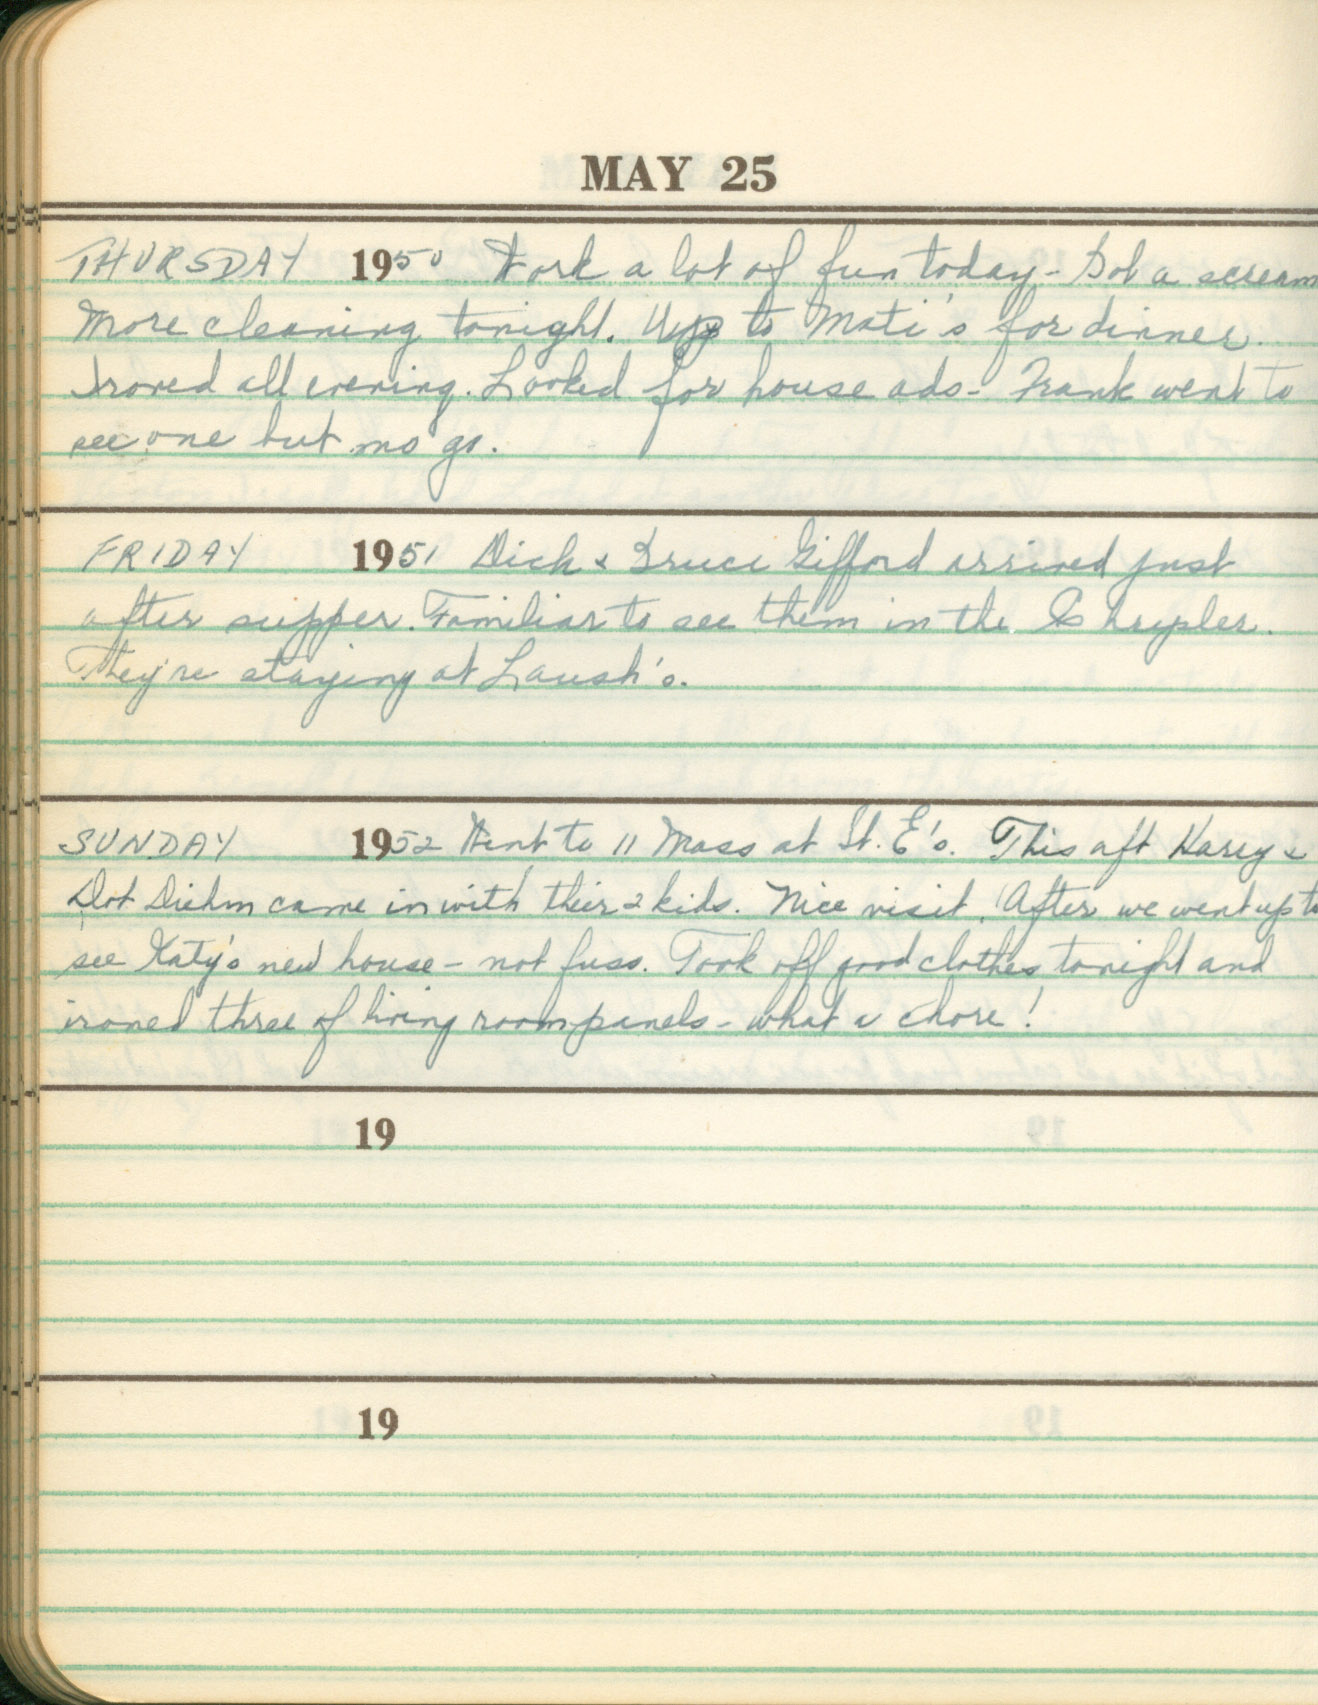 MAY 25
THURSDAY 1950 Work a lot of fun today - Bob a scream
More cleaning tonight. Up to Mati's for dinner.
Ironed all evening. Looked for house ads - Frank went to
see one but no go.
FRIDAY 1951 Dick & Bruce Gifford arrived just
after supper. Familiar to see them in the Chrysler.
They're staying at Laush's.
SUNDAY 1952 Went to 11 Mass at St. E's. This aft Harry &
Dot Diehm came in with their 2 kids. Nice visit. After we went up to
see Katy's new house - not fuss. Took off good clothes tonight and
ironed three of living room panels - what a chore!
19
19